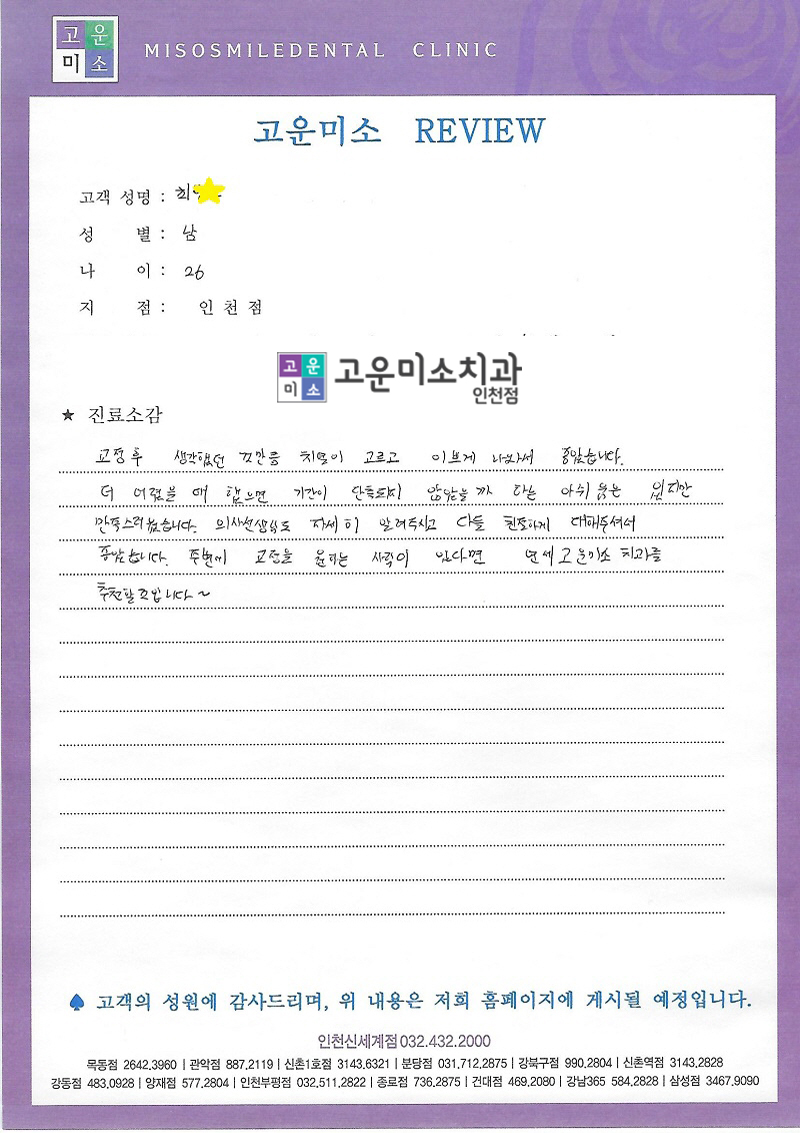 고운
미소
MISOSMILEDENTAL CLINIC
고운미소 REVIEW
고객 성명 : 최
성 별 : 남
나 이 : 26
지 점 : 인천점
고운
미소
고운미소치과
인천점
★ 진료소감
교정후 생각했던 것만큼 치열이 고르고 이쁘게 나와서 좋았습니다.
더 어렸을 때 했으면 기간이 단축되지 않았을까 하는 아쉬움은 있지만
만족스러웠습니다. 의사선생님도 자세히 알려주시고 다들 친절하게 대해주셔서
좋았습니다. 주변에 교정을 원하는 사람이 있다면 연세고운미소 치과를
추천할것입니다~
♠ 고객의 성원에 감사드리며, 위 내용은 저희 홈페이지에 게시될 예정입니다.
인천신세계점 032.432.2000
목동점 2642.3960 | 관악점 887.2119 | 신촌1호점 3143.6321 | 분당점 031.712.2875 | 강북구점 990.2804 | 신촌역점 3143.2828
강동점 483.0928 | 양재점 577.2804 | 인천부평점 032.511.2822 | 종로점 736.2875 | 건대점 469.2080 | 강남365 584.2828 | 삼성점 3467.9090